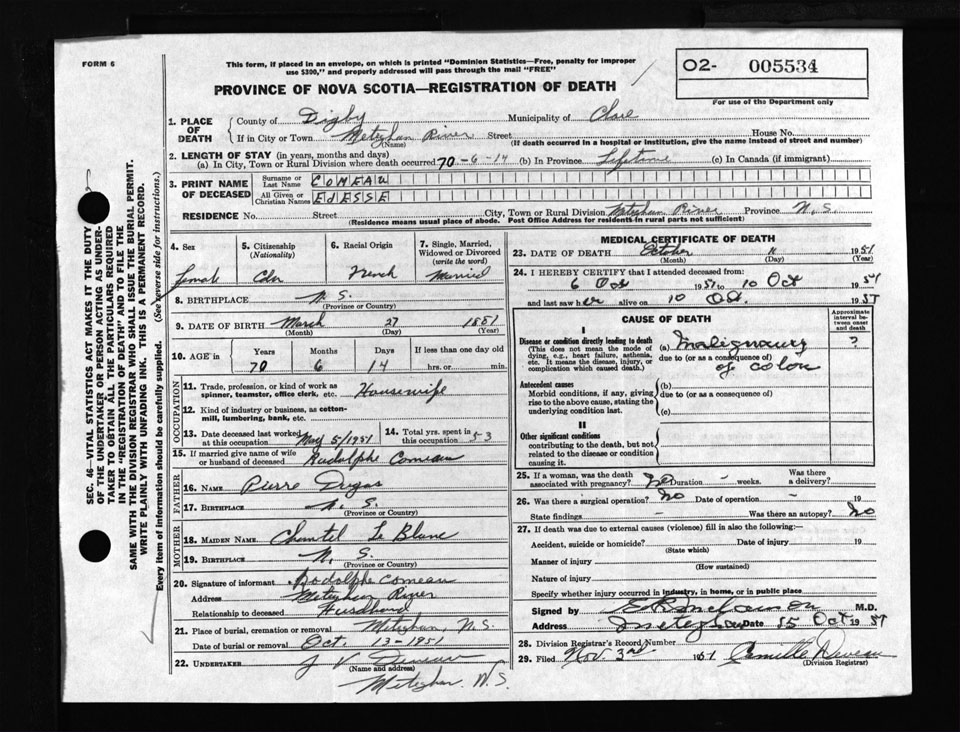 FORM 6
This form, if placed in an envelope, on which is printed "Dominion Statistics—Free, penalty for improper
use $300," and properly addressed will pass through the mail "FREE"
PROVINCE OF NOVA SCOTIA—REGISTRATION OF DEATH
O2- 005534
For use of the Department only
SEC. 46—VITAL STATISTICS ACT MAKES IT THE DUTY
OF THE UNDERTAKER OR PERSON ACTING AS UNDER-
TAKER TO OBTAIN ALL THE PARTICULARS REQUIRED
IN THE "REGISTRATION OF DEATH" AND TO FILE THE
SAME WITH THE DIVISION REGISTRAR WHO SHALL ISSUE THE BURIAL PERMIT.
WRITE PLAINLY WITH UNFADING INK. THIS IS A PERMANENT RECORD.
Every item of information should be carefully supplied. (See reverse side for instructions.)
1. PLACE OF DEATH County of Digby Municipality of Clare
If in City or Town Meteghan River Street House No.
(Name) (If death occurred in a hospital or institution, give the name instead of street and number)
2. LENGTH OF STAY (in years, months and days)
(a) In City, Town or Rural Division where death occurred 70-6-14 (b) In Province Lifetime (c) In Canada (if immigrant)
3. PRINT NAME OF DECEASED Surname or Last Name COMEAU
All Given or Christian Names EDESSE
RESIDENCE No. Street City, Town or Rural Division Meteghan River Province N.S.
(Residence means usual place of abode. Post Office Address for residents in rural parts not sufficient)
4. Sex 5. Citizenship (Nationality) 6. Racial Origin 7. Single, Married, Widowed or Divorced (write the word)
Female Cdn French Married
8. BIRTHPLACE N. S.
(Province or Country)
9. DATE OF BIRTH March 27 1881
(Month) (Day) (Year)
10. AGE in Years Months Days If less than one day old
70 6 14 hrs. or min.
OCCUPATION
11. Trade, profession, or kind of work as spinner, teamster, office clerk, etc. Housewife
12. Kind of industry or business, as cotton-mill, lumbering, bank, etc.
13. Date deceased last worked at this occupation May 5/1951 14. Total yrs. spent in this occupation 53
15. If married give name of wife or husband of deceased Rudolphe Comeau
FATHER
16. NAME Pierre Dugas
17. BIRTHPLACE N. S.
(Province or Country)
MOTHER
18. MAIDEN NAME Le Blanc
19. BIRTHPLACE N. S.
(Province or Country)
20. Signature of informant Rodolphe Comeau
Address Meteghan River
Relationship to deceased Husband
21. Place of burial, cremation or removal Meteghan, N.S.
Date of burial or removal Oct. 13-1951
22. UNDERTAKER J V Deveau
(Name and address)
Meteghan N.S.
MEDICAL CERTIFICATE OF DEATH
23. DATE OF DEATH October 11 1951
(Month) (Day) (Year)
24. I HEREBY CERTIFY that I attended deceased from
6 Oct 1951 to 10 Oct 1951
and last saw her alive on 10 Oct. 1951
CAUSE OF DEATH
Approximate interval between onset and death
I
Disease or condition directly leading to death
(This does not mean the mode of dying, e.g., heart failure, asthenia, etc. It means the disease, injury, or complication which caused death.)
(a) Malignancy ?
due to (or as a consequence of)
of colon
Antecedent causes
Morbid conditions, if any, giving rise to the above cause, stating the underlying condition last.
(b)
due to (or as a consequence of)
(c)
II
Other significant conditions
contributing to the death, but not related to the disease or condition causing it.
25. If a woman, was the death associated with pregnancy? No Duration - weeks. Was there a delivery?
26. Was there a surgical operation? No Date of operation - 19
State findings - Was there an autopsy? No
27. If death was due to external causes (violence) fill in also the following:—
Accident, suicide or homicide? Date of injury 19
(State which)
Manner of injury
(How sustained)
Nature of injury
Specify whether injury occurred in industry, in home, or in public place
Signed by M.D.
Address Meteghan Date 15 Oct 1951
28. Division Registrar's Record Number
29. Filed Nov. 3rd 1951 Camille Deveau
(Division Registrar)